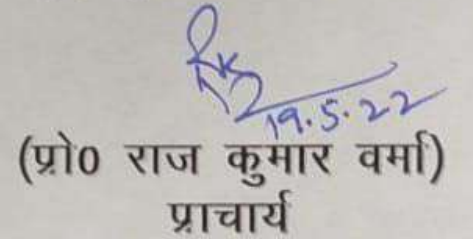 19.5.22
(प्रो0 राज कुमार वर्मा)
प्राचार्य